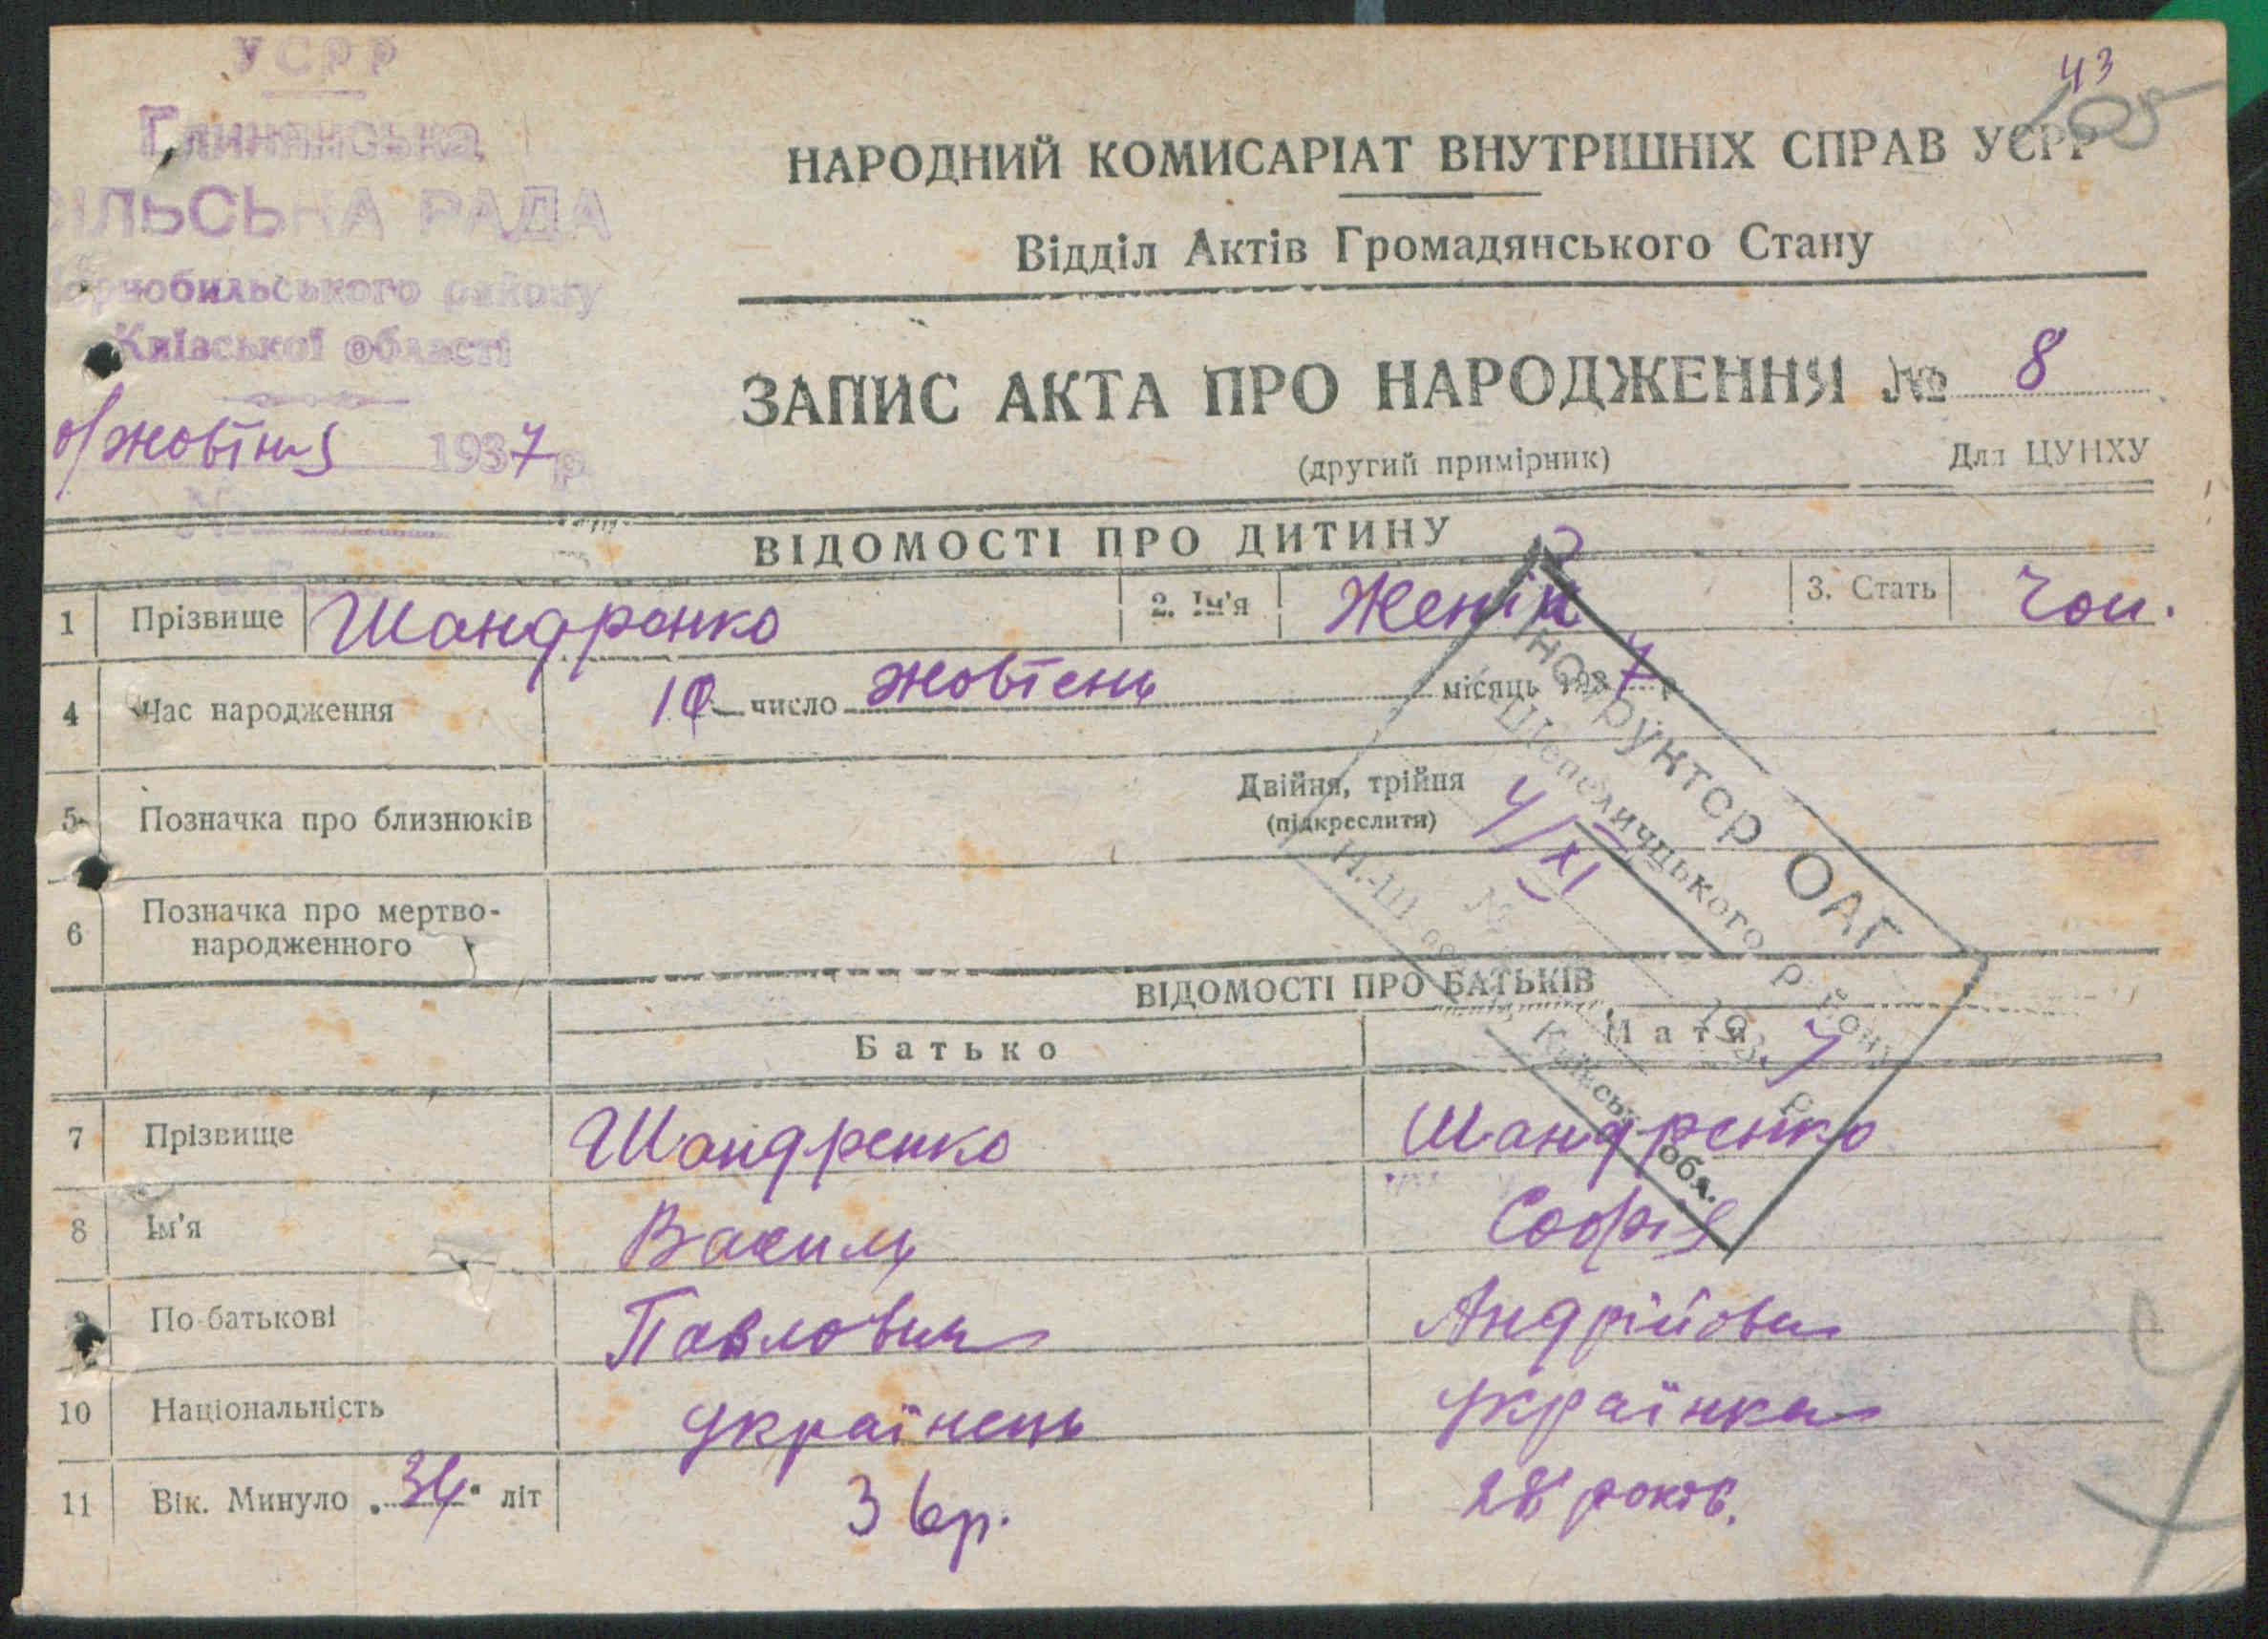 УСРР
Глинянська
СІЛЬСЬКА РАДА
Чорнобильського району
Київської області
жовтня 1937 р
№
43
105
НАРОДНИЙ КОМИСАРІАТ ВНУТРІШНІХ СПРАВ УСРР
Відділ Актів Громадянського Стану
ЗАПИС АКТА ПРО НАРОДЖЕННЯ № 8
(другий примірник) Для ЦУНХУ
ВІДОМОСТІ ПРО ДИТИНУ
1 Прізвище Шандренко 2. Ім'я Женік 3. Стать Чол.
4 Час народження 10 число жовтень місяць 1937 р
5 Позначка про близнюків Двійня, трійня
(підкреслити)
6 Позначка про мертво-
народженного
Інструктор ОАГ
Шепелицького району
Н.-Ш
Київськ. обл.
4/XI 1937 р.
№
ВІДОМОСТІ ПРО БАТЬКІВ
Батько Мати
7 Прізвище Шандренко Шандренко
8 Ім'я Василь Софія
9 По-батькові Павлович Андрійовн
10 Національність українець українка
11 Вік. Минуло 34 літ 36 р. 28 років.